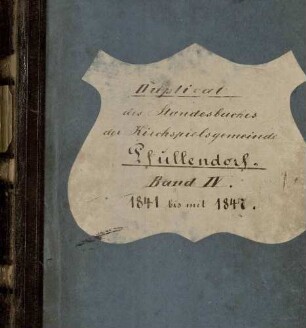 Duplicat
des Standesbuches
der Kirchspielsgemeinde
Pfullendorf.
Band IV.
1841 bis mit 1847.